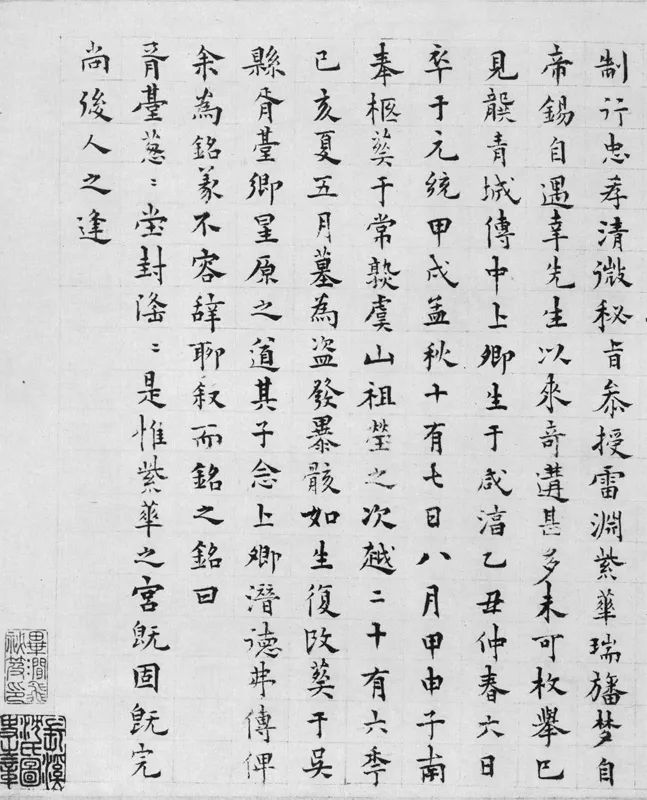 制行忠孝清微秘旨叅授雷淵紫華瑞旛梦自
帝錫自遇幸先生以來奇遘甚多未可枚舉已
見龔青城傳中上卿生于咸淳乙丑仲春六日
卒于元統甲戌孟秋十有七日八月甲申子南
奉柩葬于常熟虞山祖塋之次越二十有六季
已亥夏五月墓為盜發暴骸如生復改葬于吳
縣胥臺鄉星原之道其子念上卿潛德弗傳俾
余為銘義不容辭聊叙而銘之銘曰
胥臺葱〻堂封㴠〻是惟紫華之宮既固既完
尚後人之逢